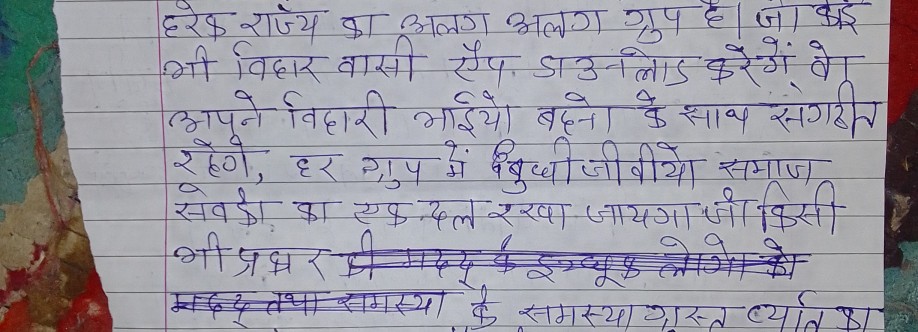 हरेक राज्य का अलग अलग ग्रुप है। जो कोई
भी विहार वासी ऐप डाउनलोड करेगें वो
अपने विहारी भाईयो बहनो के साथ संगठीत
रहेगे, हर ग्रुप में बुध्धीजीवीयो समाज
सेवको का एक दल रखा जायगा जो किसी
भी प्रकार की मदद के इच्छुक लोगो को
मदद तथा समस्या के समस्या ग्रस्त व्यक्ति का